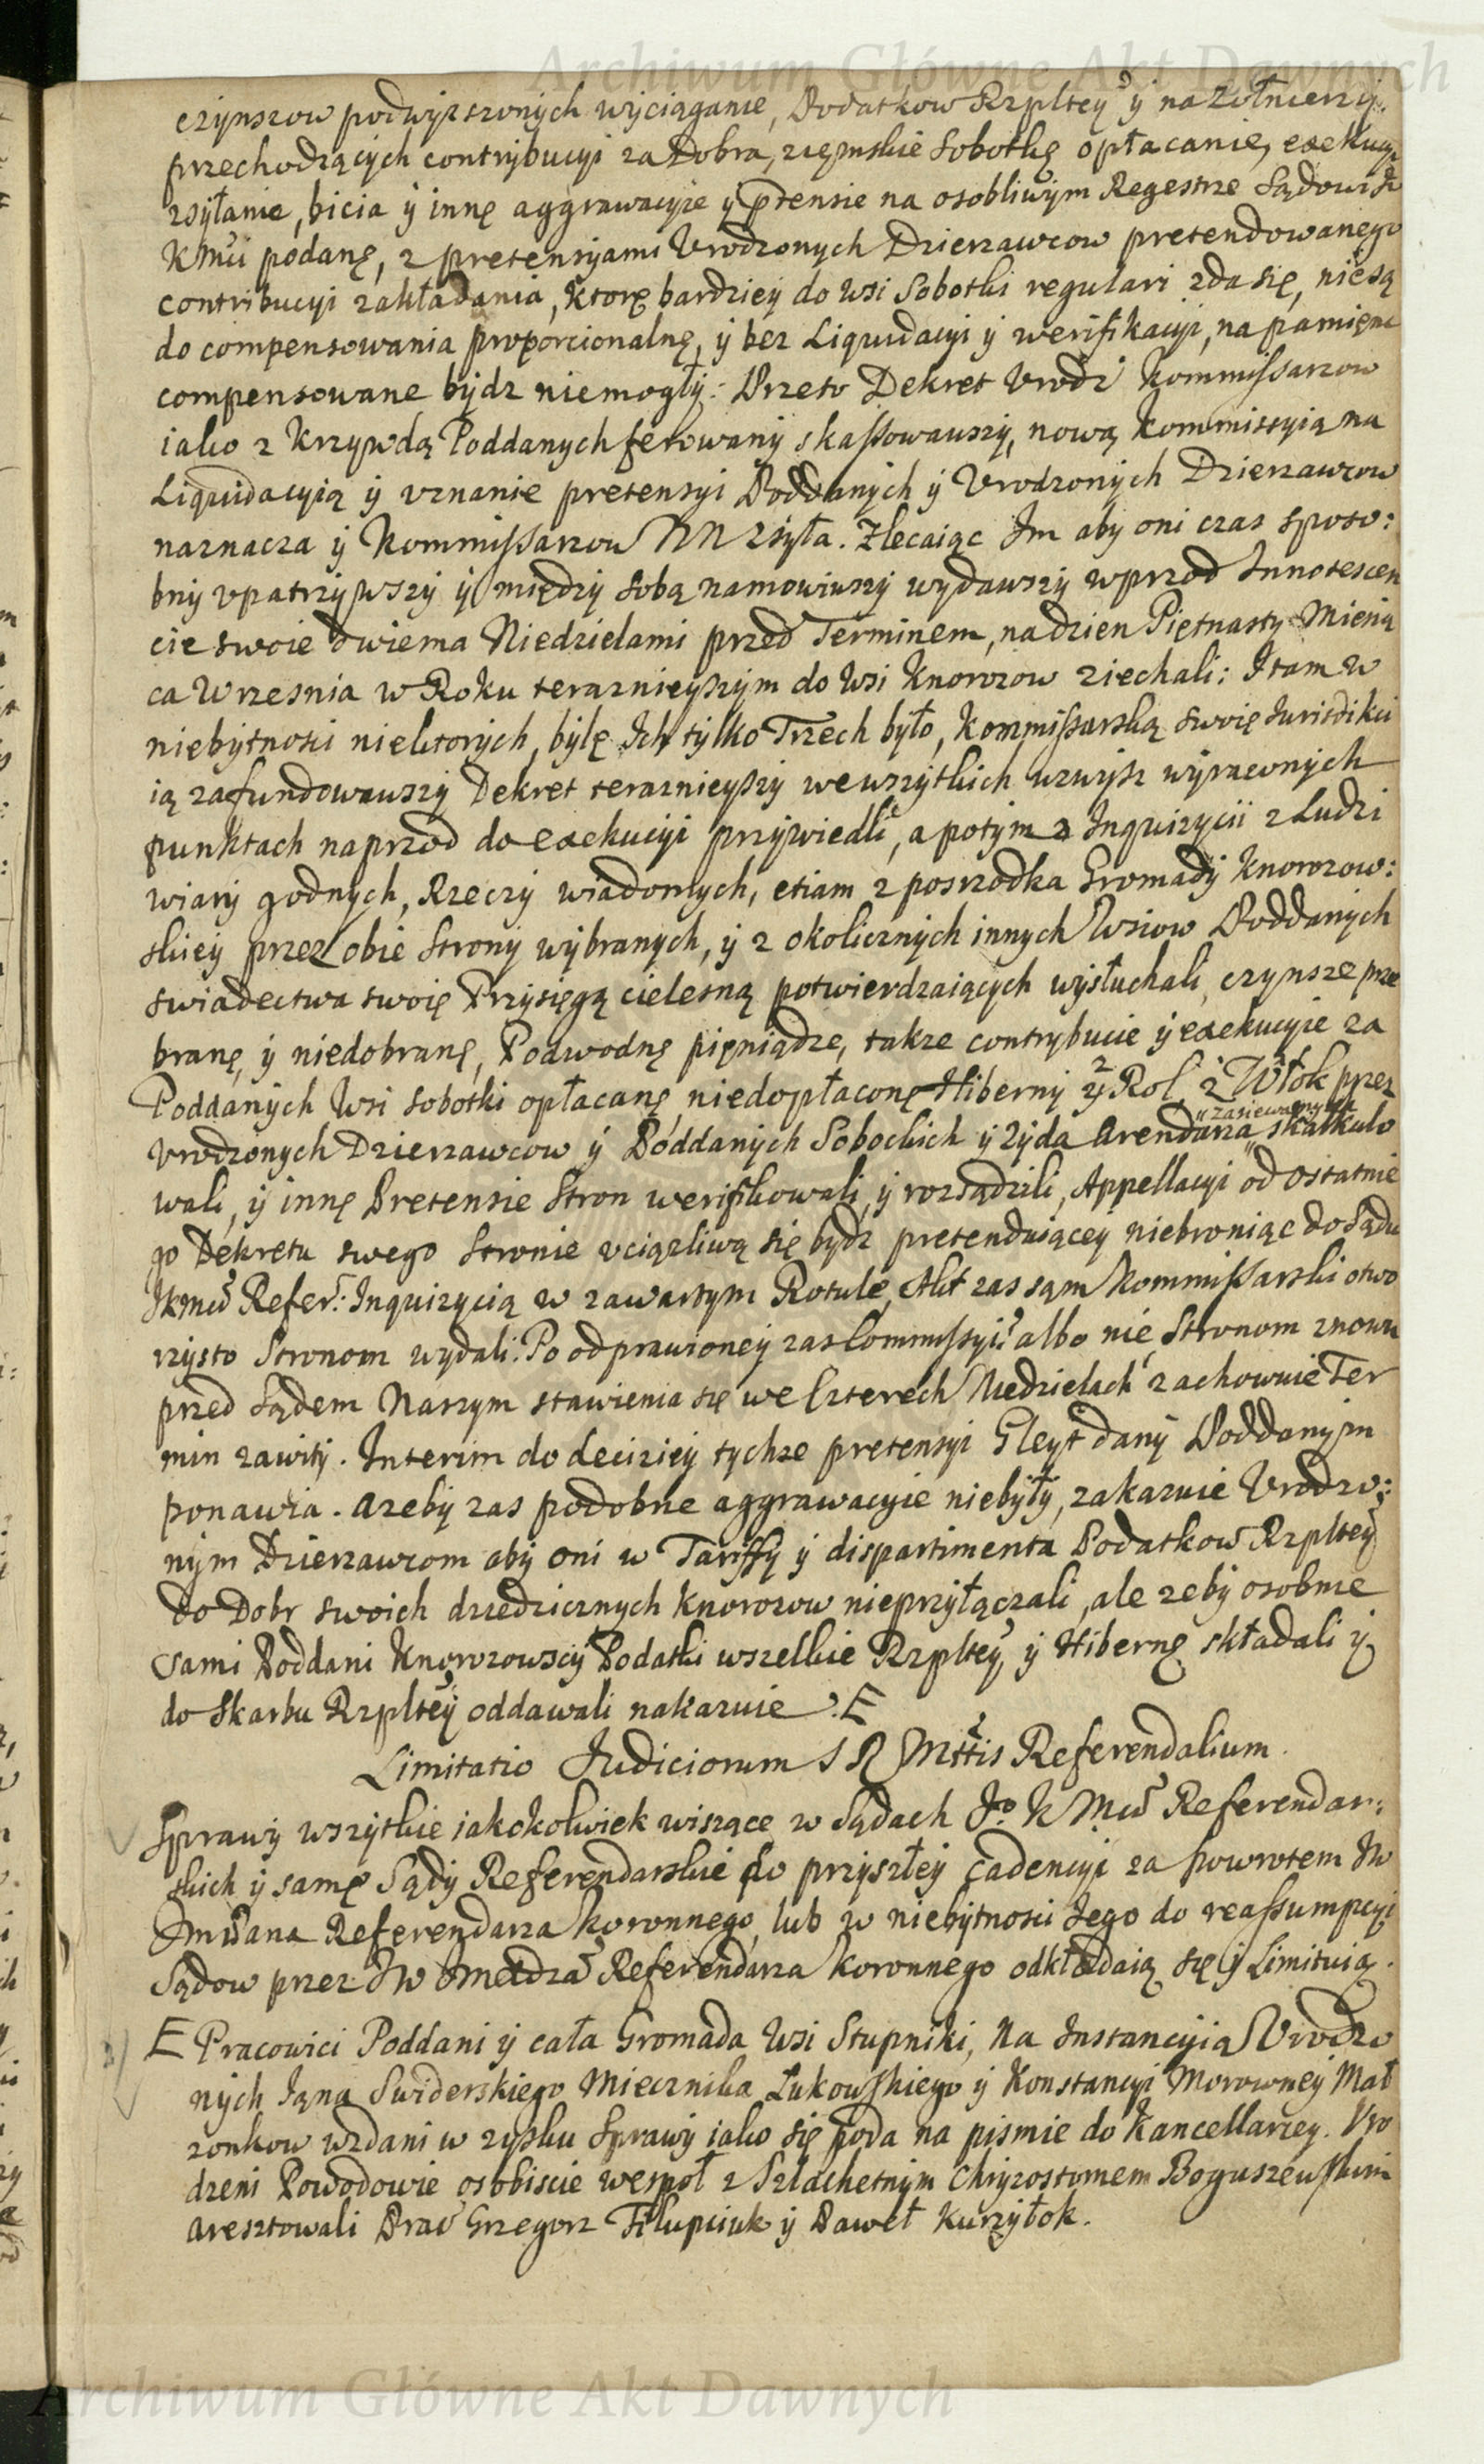 Archiwum Główne Akt Dawnych
czynszow podwyzszonych wyciąganie, Podatkow Rzpltey y na Zołnierzy
przechodzących contrybucyi za Dobra, ziemskie Sobotkę opłacanie, exekucyi
zsyłanie, bicia y innę aggrawacyie y ptensie na osobliwym Regestrze Sądowi J
KMci podanę, z pretensyami Vrodzonych Dzierzawcow pretendowanego
contribucyi zakładania, ktorę bardziey do Wsi Sobotki regulari zda się, niesą
do compensowania proporcionalnę, y bez Liquidacyi y werifikacyi, na pamięnc
compensowane bydz niemogły: Przeto Dekret Vrodz Kommissarzow
iako z Krzywdą Poddanych ferowany skassowawszy, nową Kommissyią na
Liquidacyią y vznanie pretensyi Poddanych y Vrodzonych Dzierzawcow
naznacza y Kommissarzow NN Zsyła. Zlecaiąc Im aby oni czas sposo:
bny vpatrzywszy y między sobą namowiwszy wydawszy wprzod Innotescen
cie swoie dwiema Niedzielami przed Terminem, na dzien Piętnasty Miesią
ca Wrzesnia w Roku teraznieyszym do Wsi Knorozow ziechali: I tam w
niebytnosci niektorych, bylę Ich tylko Trzech było, Kommissarską swoię Iurisdikci
ią zafundowawszy Dekret teraznieyszy we wszytkich wzwysz wyrazonych
punktach naprzod do exekucyi przywiedli, a potym z Inquizycii z Ludzi
wiary godnych, Rzeczy wiadomych, etiam z posrzodka Gromady Knorozow:
skiey przez obie Strony wybranych, y z okolicznych innych Wsiow Poddanych
swiadectwa swoię Przysięgą cielesną potwierdzaiących wysłuchali, czynsze prze
branę, y niedobranę, Podwodnę pięniądze, takze contrybucie y exekucyie za
Poddanych Wsi Sobotki opłacanę, niedopłaconę Hiberny y z Rol, z Włok przez
Vrodzonych Dzierzawcow y Poddanych Sobockich y Zyda Arendarza "zasiewanych" skalkulo
wali, y innę Pretensie Stron werifikowali, y rozsądzili, Appellacyi od ostatnie
go Dekretu swego Stronie vciązliwą się bydz pretenduiącey niebroniąc do Sądu
JKMci Refer: Inquizycią w zawartym Rotule, Akt zas sąm Kommissarski otwo
rzysto Stronom wydali. Po odprawioney zas Commissyi albo nie, Stronom znowu
przed Sądem Naszym stawienia się we Czterech Niedzielach zachowuie Ter
min zawity. Interim do deciziey tychze pretensyi Gleyt dany Poddanym
ponawia. Azeby zas podobne aggrawacyie niebyły, zakazuie Vrodzo:
nym Dzierzawcom aby oni w Tariffy y dispartimenta Podatkow Rzpltey
do Dobr swoich dziedzicznych Knorozow nieprzyłączali, ale zeby osobnie
sami Poddani Knorozowscy Podatki wszelkie Rzpltey y Hibernę składali y
do Skarbu Rzpltey oddawali nakazuie. E
Limitatio Iudiciorum S R Mttis Referendalium.
Sprawy wszytkie iakokolwiek wiszące w Sądach Jo K Mci Referendar:
skich y samę Sądy Referendarskie do przyszłey cadencyi za powrotem JW
Referendarza Koronnego, lub w niebytnosci Iego do reassumpcyi
Sądow przez JW Referendarza Koronnego odkładaią się y Limituią.
E Pracowici Poddani y cała Gromada Wsi Stupniki, Na Instancyią Vrodzo
nych Iąna Swiderskiego Miecznika Łukowskiego y Konstancyi Morowney Mał
zonkow wzdani w zysku Sprawy iako się poda na pismie do Kancellaryey. Vro
dzeni Powodowie osobiscie wespoł z Szlachetnym Chryzostomem Boguszewskim
Aresztowali Prac Grzegorz Filupciuk y Paweł Kurzyłok.
Archiwum Główne Akt Dawnych